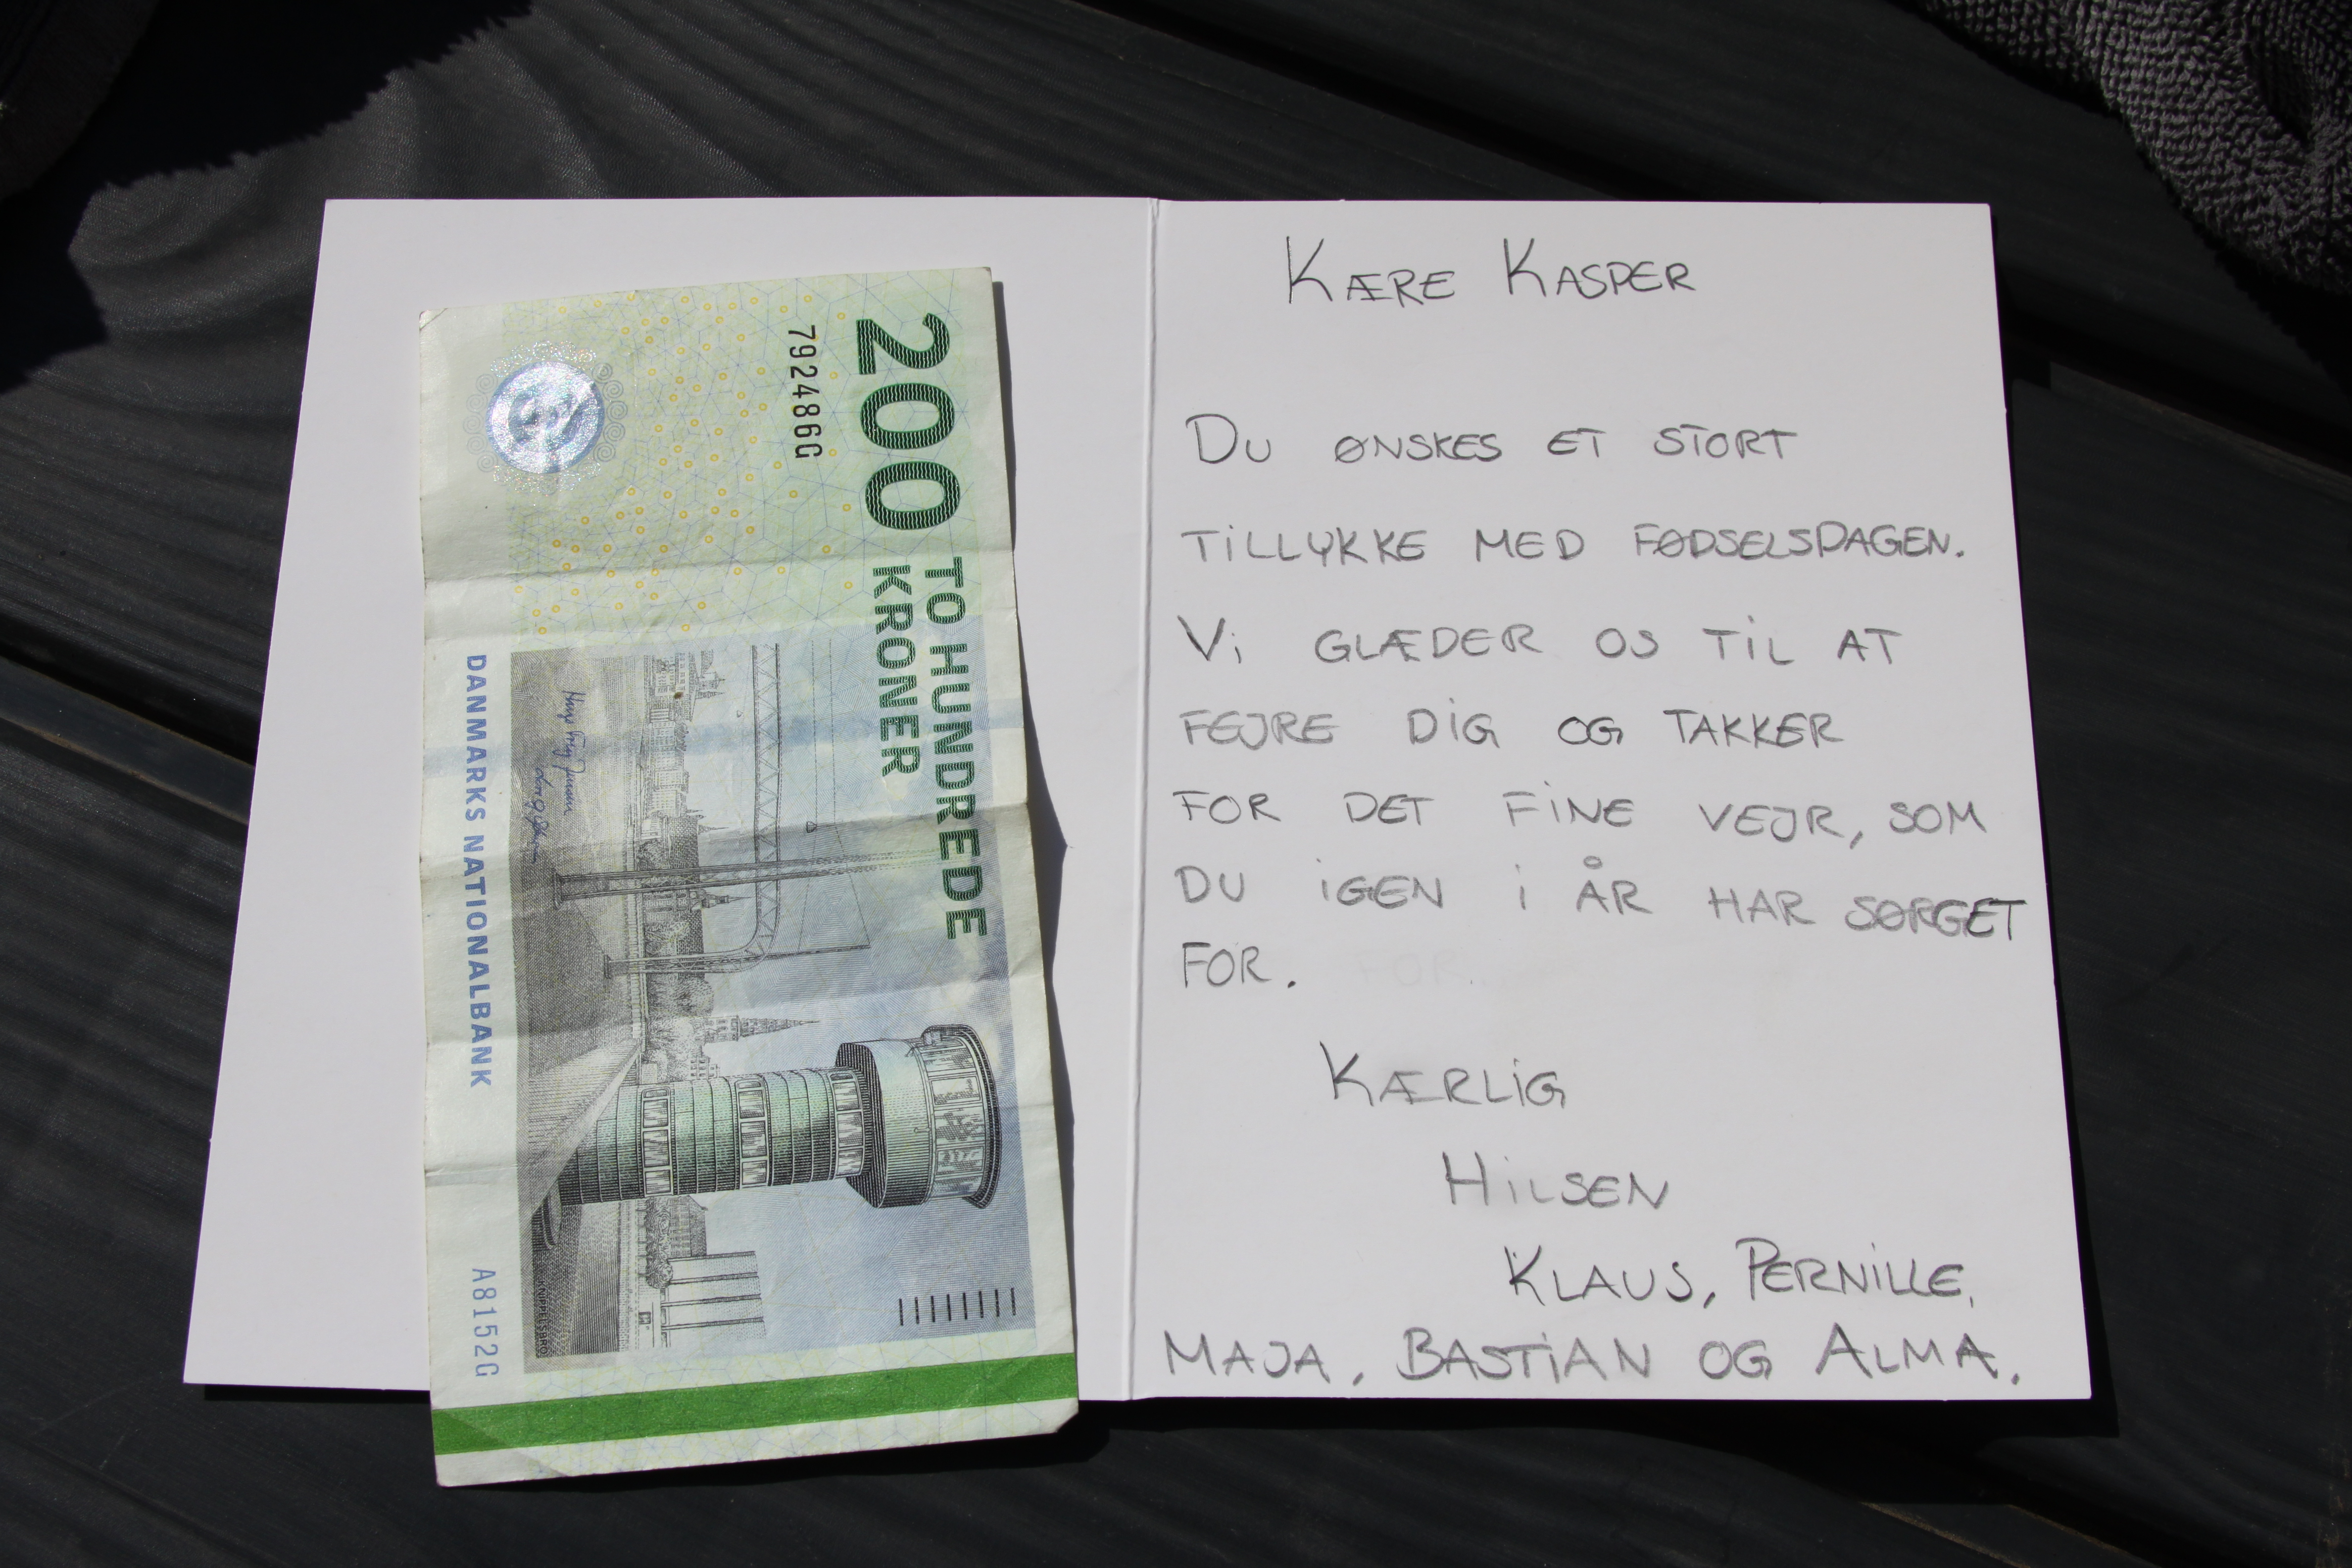 200 TO HUNDREDE
KRONER
7924866G
DANMARKS NATIONALBANK
A8152G
KNIPPELSBRO
KÆRE KASPER
DU ØNSKES ET STORT
TiLLYKKE MED FØDSELSDAGEN.
Vi GLÆDER OS TiL AT
FEJRE DiG OG TAKKER
FOR DET FiNE VEJR, SOM
DU iGEN i ÅR HAR SØRGET
FOR.
KÆRLiG
HiLSEN
KLAUS, PERNiLLE,
MAJA, BASTiAN OG ALMA.